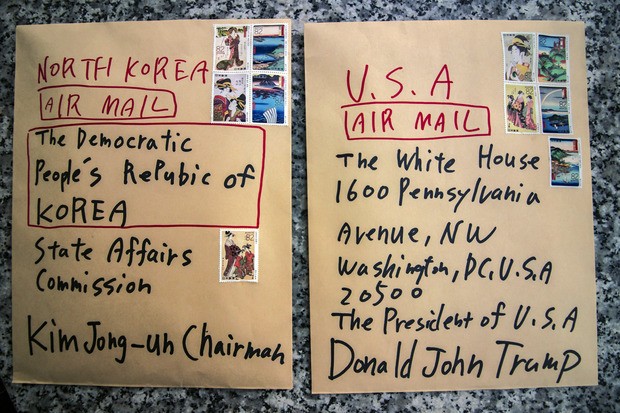 NORTH KOREA
AIR MAIL
The Democratic
People's RePubic of
KOREA
State Affairs
Commission
Kim Jong-un Chairman
U.S.A
AIR MAIL
The White House
1600 Pennsylvania
Avenue, NW
Washington, DC, U.S.A
20500
The President of U.S.A
Donald John Trump